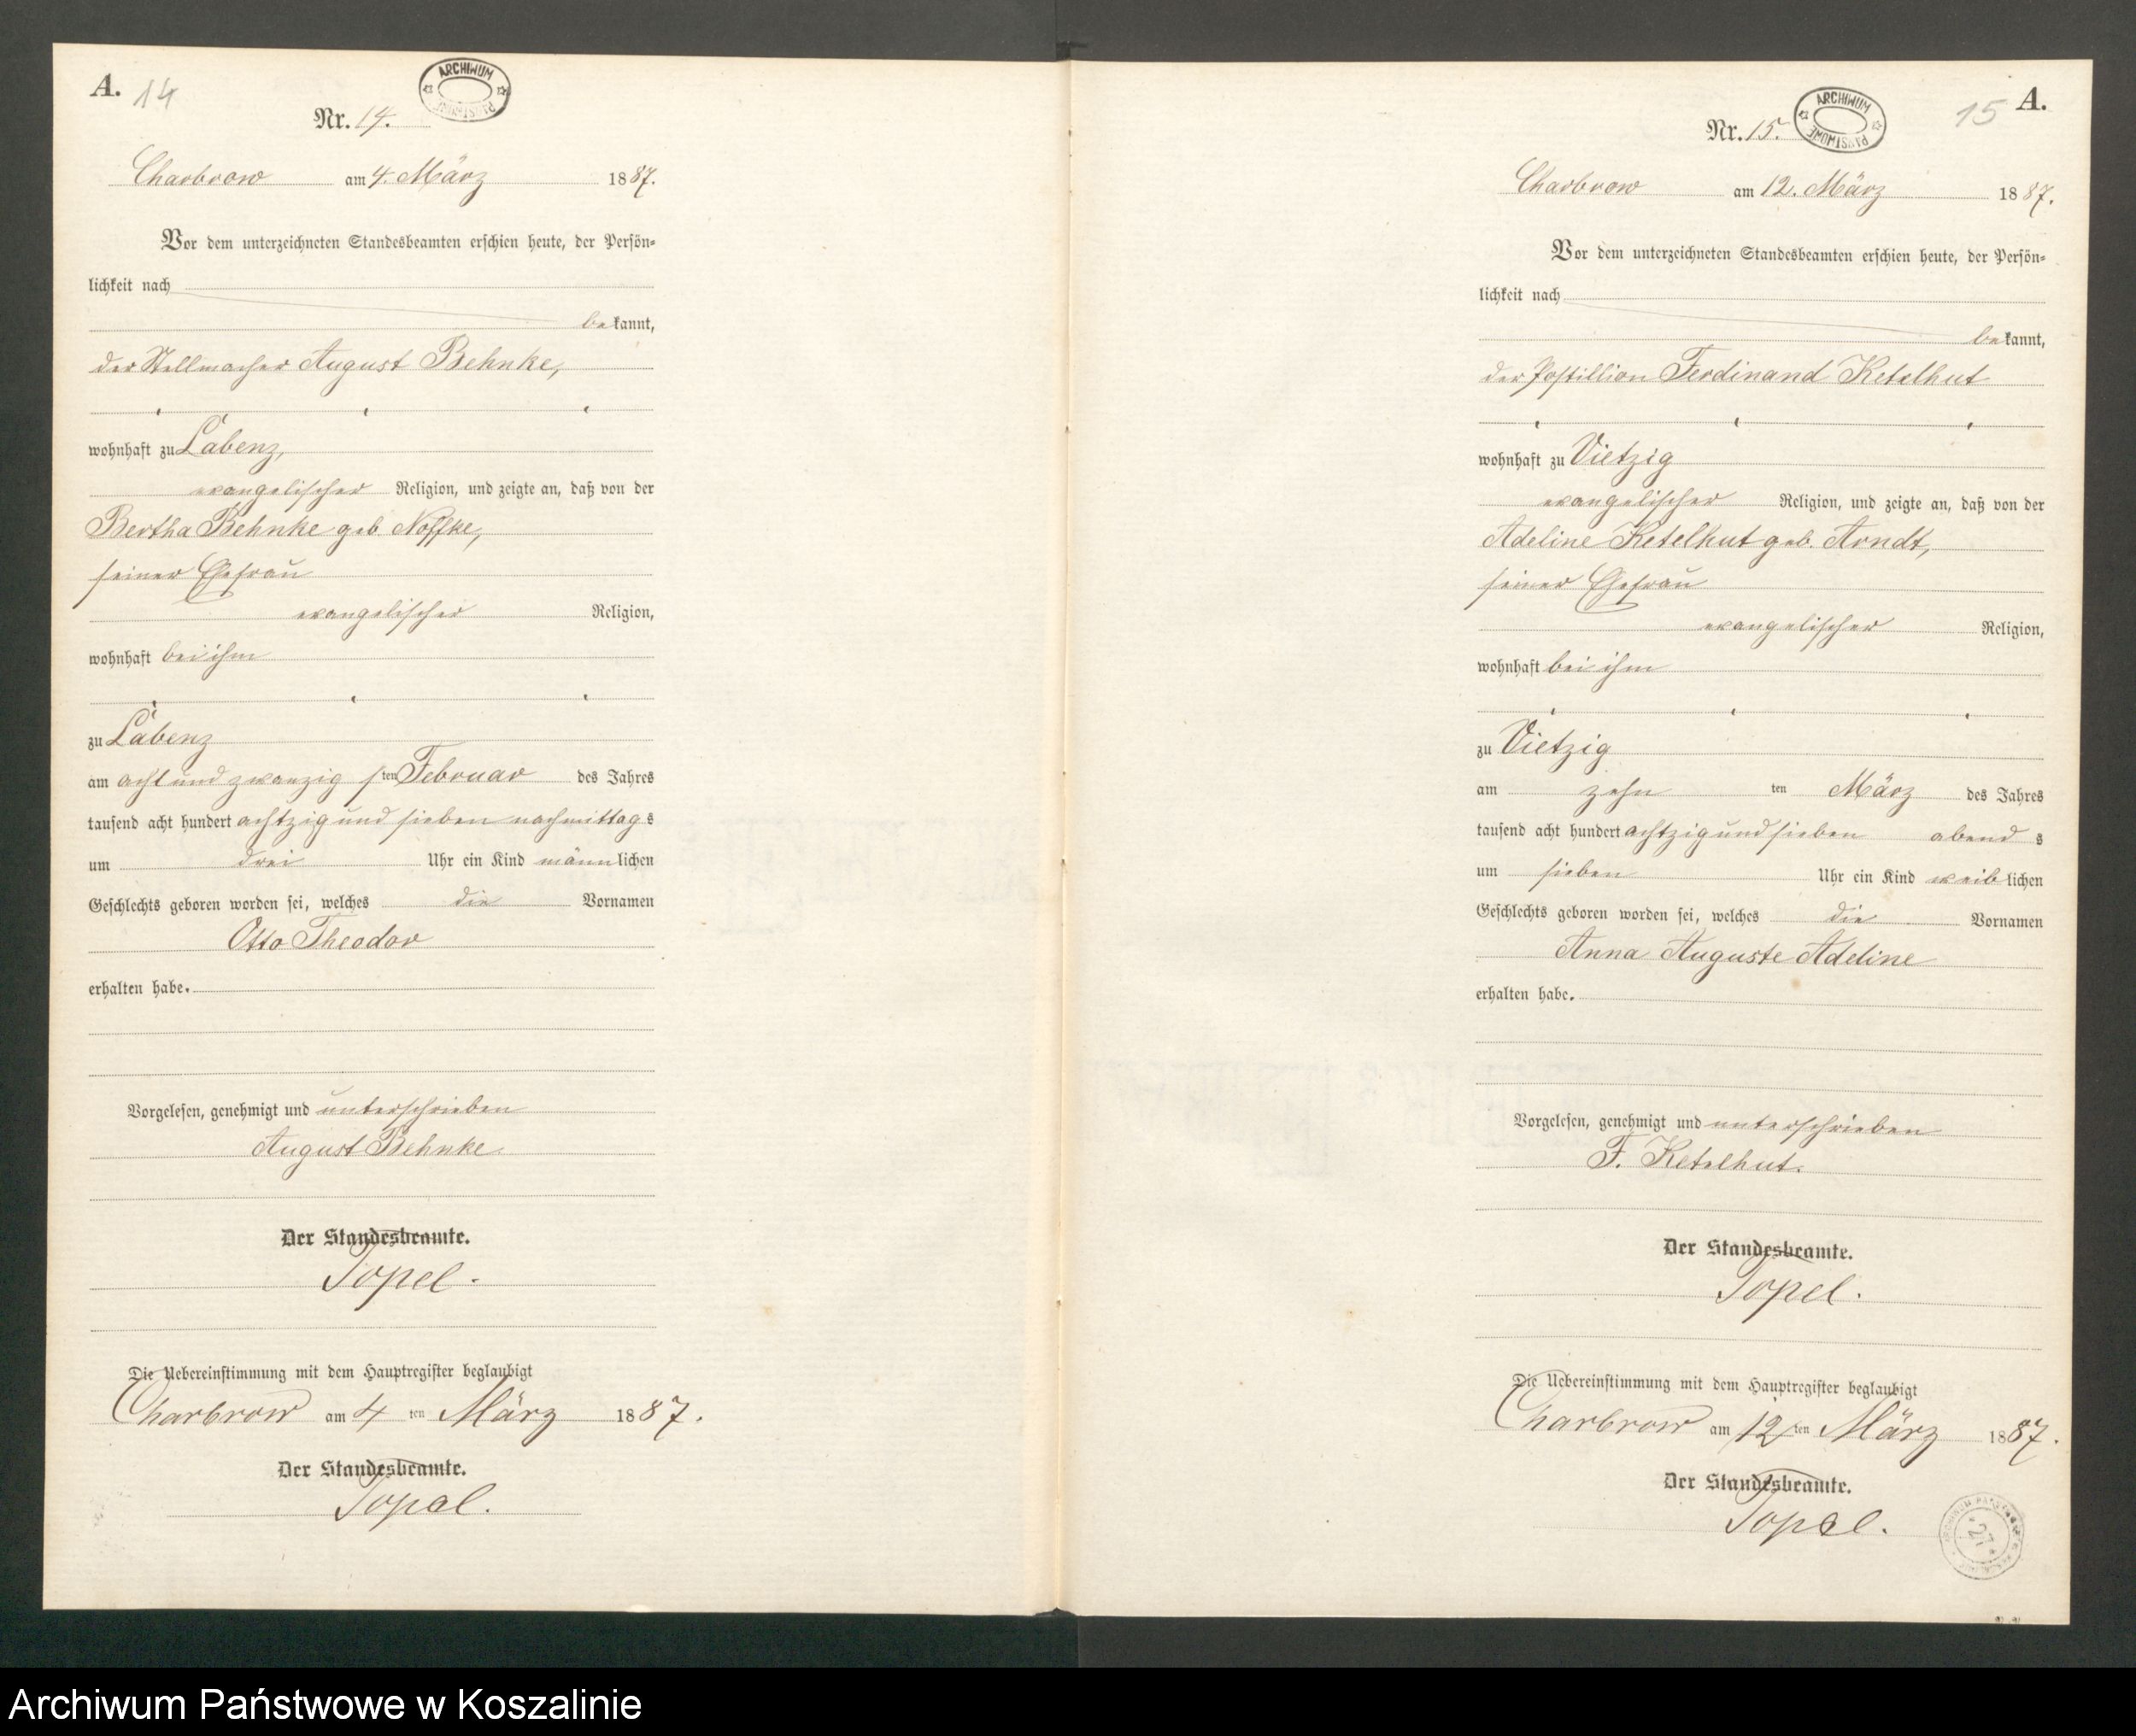 A. 14
ARCHIWUM PAŃSTWOWE
Nr. 14.
Charbrow am 4. März 1887.
Vor dem unterzeichneten Standesbeamten erschien heute, der Persön-
lichkeit nach
bekannt,
der Stellmacher August Behnke,
wohnhaft zu Labenz,
evangelischer Religion, und zeigte an, daß von der
Bertha Behnke geb. Noffke,
seiner Ehefrau
evangelischer Religion,
wohnhaft bei ihm
zu Labenz
am acht und zwanzigsten Februar des Jahres
tausend acht hundert achtzig und sieben nachmittags
um drei Uhr ein Kind männlichen
Geschlechts geboren worden sei, welches die Vornamen
Otto Theodor
erhalten habe.
Vorgelesen, genehmigt und unterschrieben
August Behnke.
Der Standesbeamte.
Topel.
Die Uebereinstimmung mit dem Hauptregister beglaubigt
Charbrow am 4ten März 1887.
Der Standesbeamte.
Topel.
15 A.
ARCHIWUM PAŃSTWOWE
Nr. 15.
Charbrow am 12. März 1887.
Vor dem unterzeichneten Standesbeamten erschien heute, der Persön-
lichkeit nach
bekannt,
der Postillion Ferdinand Ketelhut
wohnhaft zu Vietzig
evangelischer Religion, und zeigte an, daß von der
Adeline Ketelhut geb. Arndt,
seiner Ehefrau
evangelischer Religion,
wohnhaft bei ihm
zu Vietzig
am zehnten März des Jahres
tausend acht hundert achtzig und sieben abends
um sieben Uhr ein Kind weiblichen
Geschlechts geboren worden sei, welches die Vornamen
Anna Auguste Adeline
erhalten habe.
Vorgelesen, genehmigt und unterschrieben
F. Ketelhut.
Der Standesbeamte.
Topel.
Die Uebereinstimmung mit dem Hauptregister beglaubigt
Charbrow am 12ten März 1887.
Der Standesbeamte.
Topel.
Archiwum Państwowe w Koszalinie